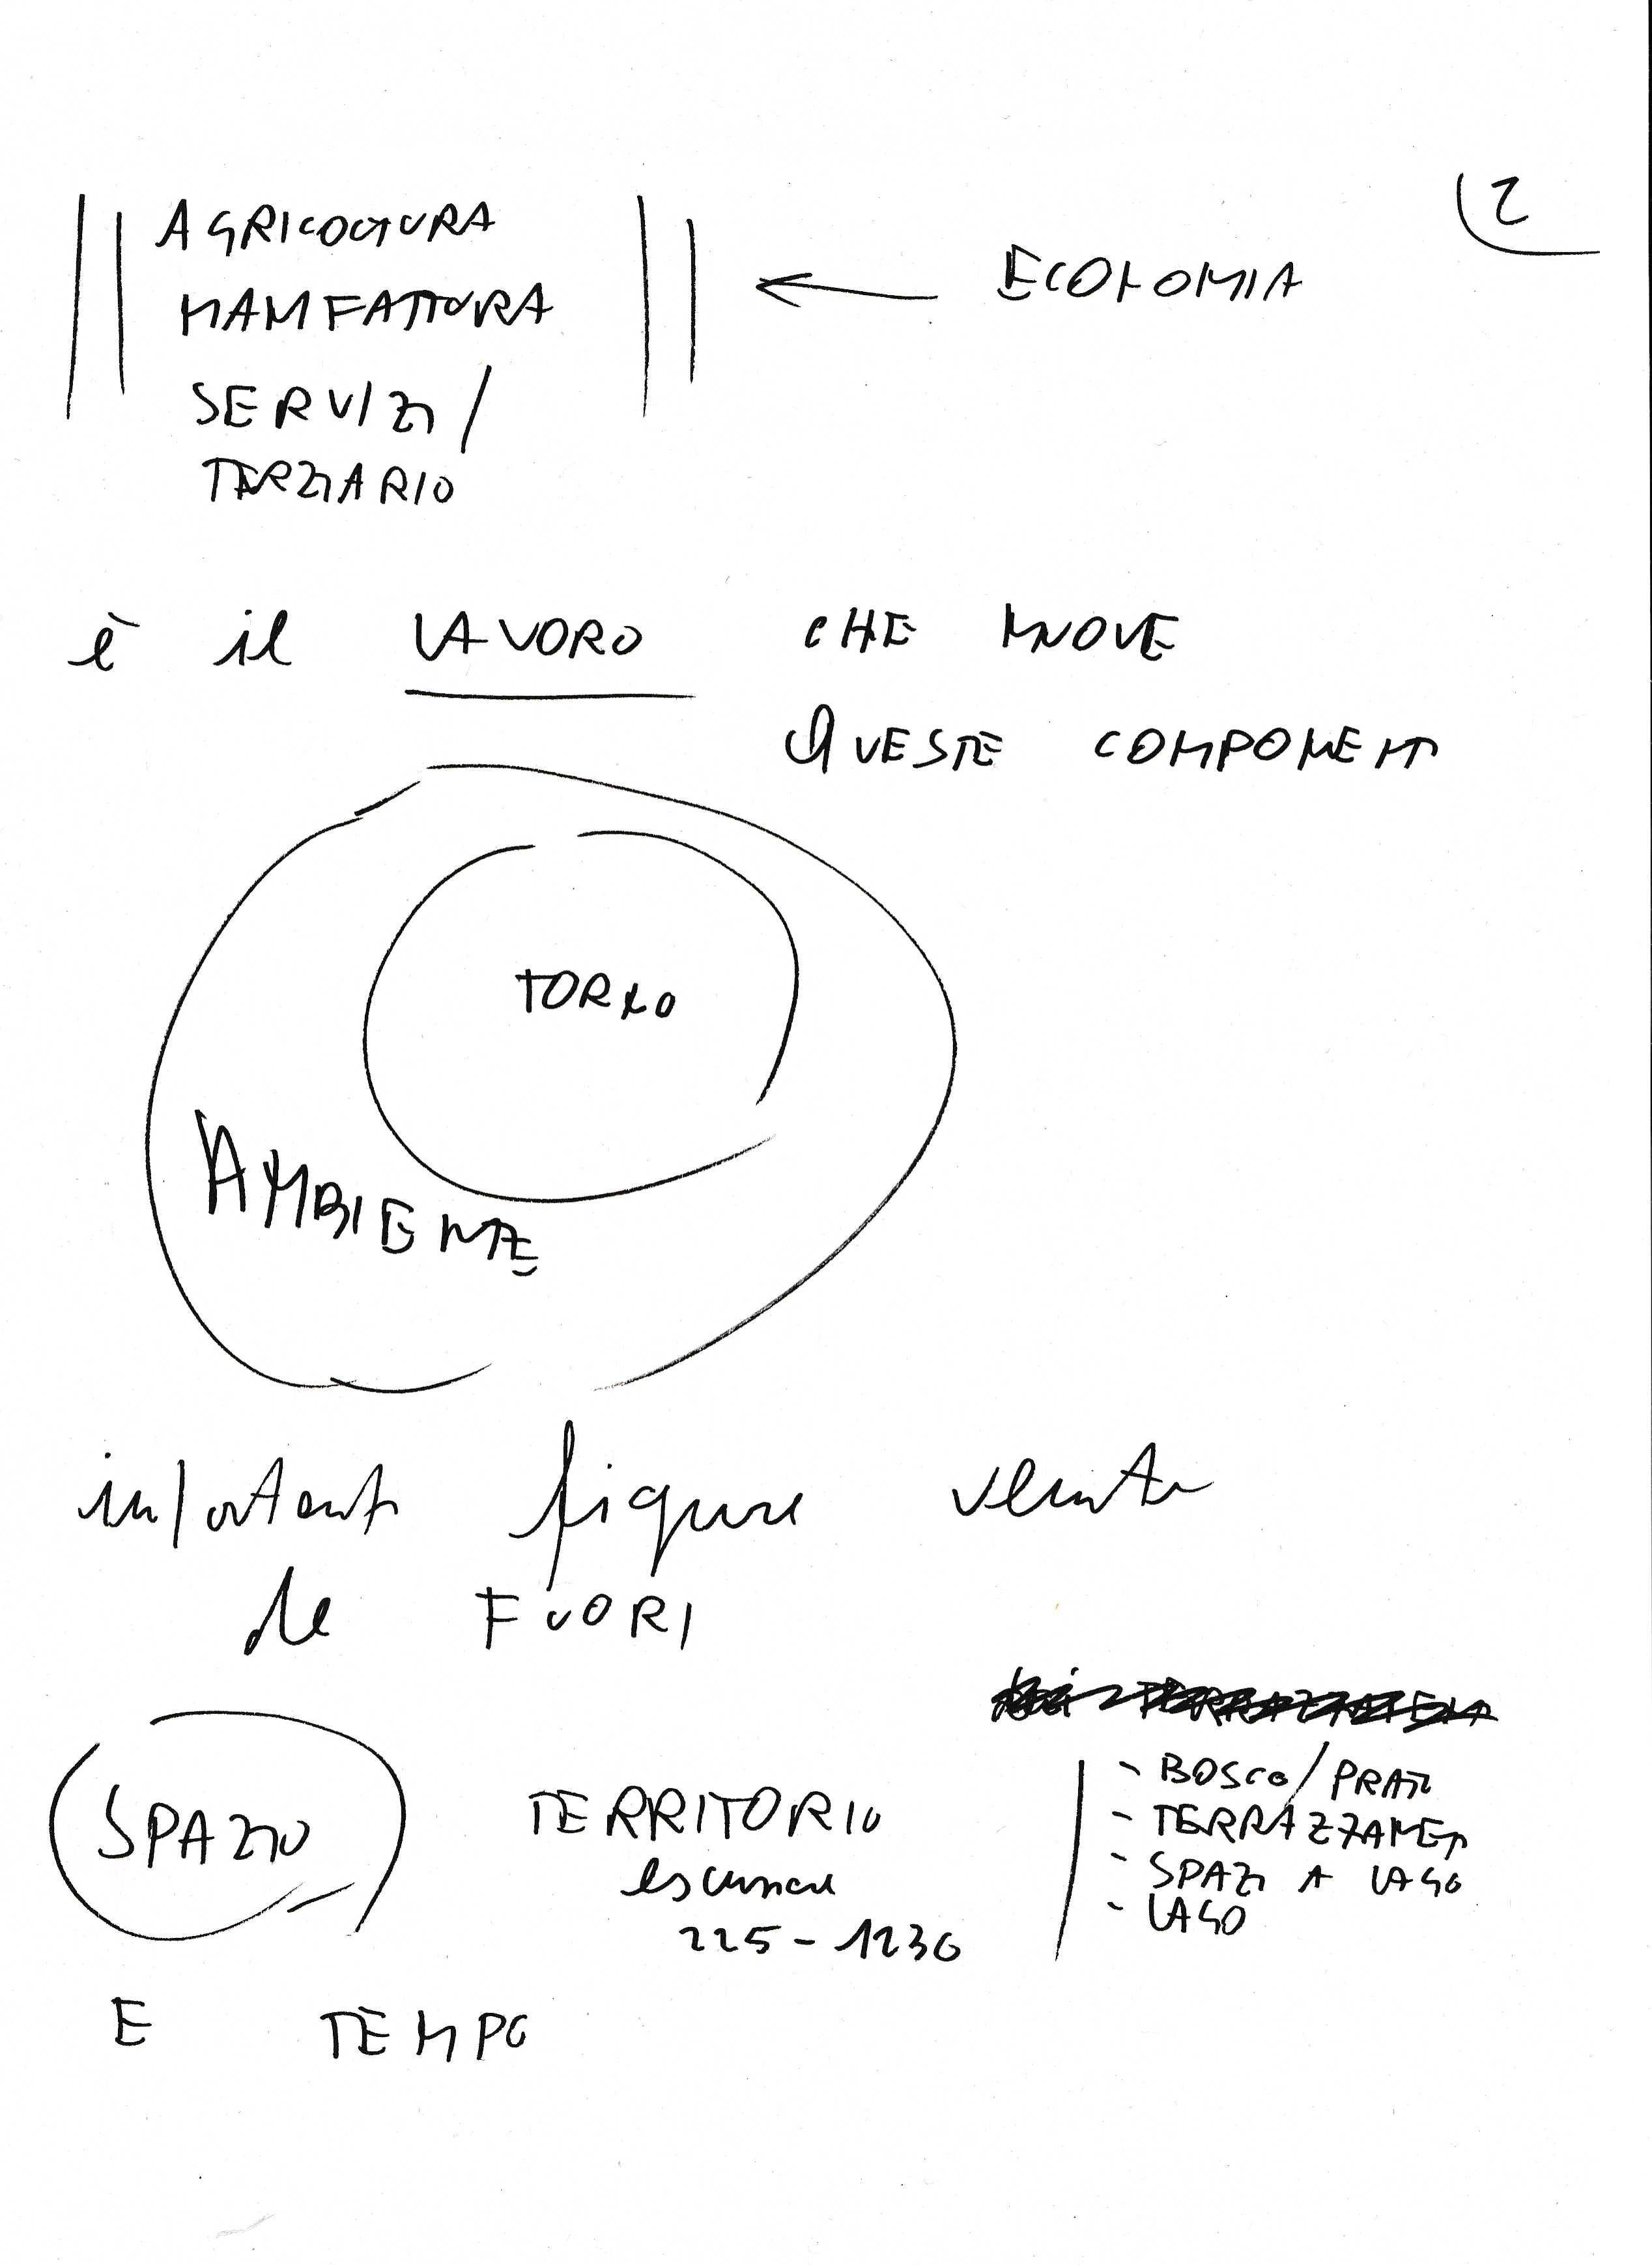 2
AGRICOLTURA
MANIFATTURA
SERVIZI /
TERZIARIO
← ECONOMIA
è il LAVORO CHE MUOVE
QUESTE COMPONENTI
TORNO
AMBIENTE
importanti figure venute
da FUORI
SPAZIO
TERRITORIO
escursione
225 - 1236
- BOSCO / PRATI
- TERRAZZAMENTI
- SPAZI A LAGO
- LAGO
E TEMPO